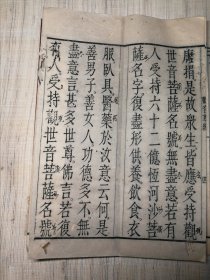 唐捐是故衆生皆應受持觀
世音菩薩名號無盡意若有
人受持六十二億恆河沙菩
薩名字復盡形供養飲食衣
服臥具醫藥於汝意云何是
善男子善女人功德多不無
盡意言甚多世尊佛言若復
有人受持觀世音菩薩名號